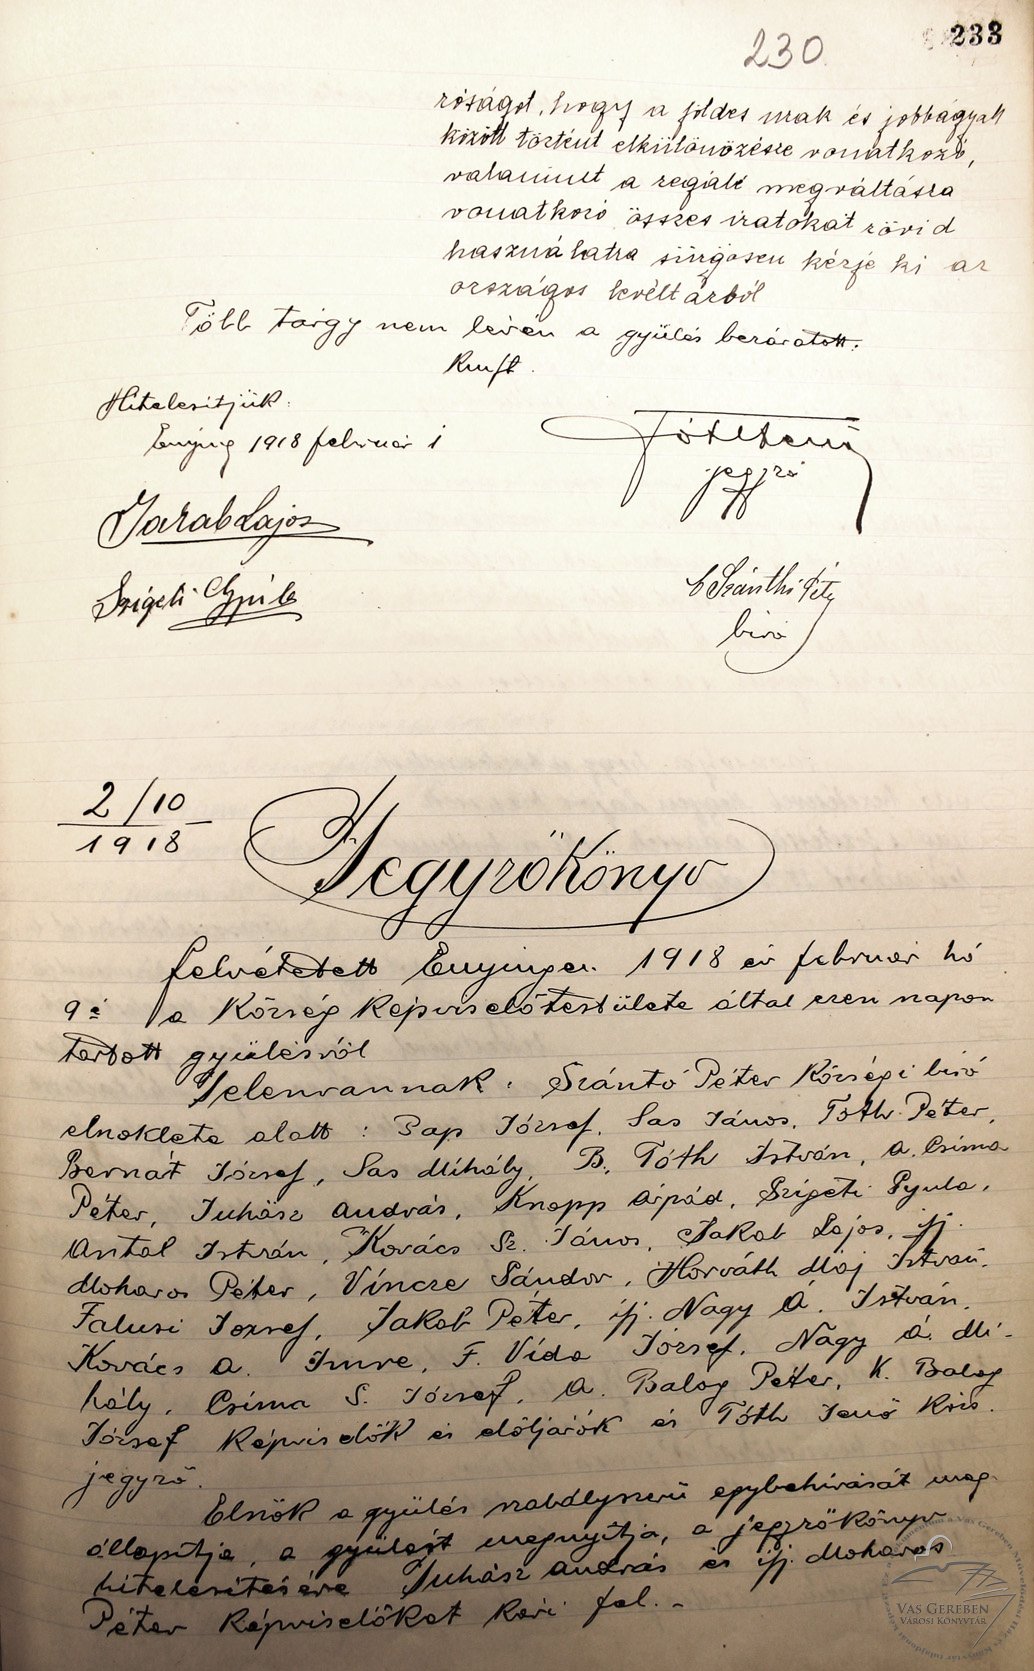 230
233
róságot, hogy a földes urak és jobbágyak
között történt elkülönözésre vonatkozó,
valamint a regále megváltásra
vonatkozó összes iratokat rövid
használatra sürgősen kérje ki az
országos levéltárból
Több tárgy nem lévén a gyülés bezáratott.
Kmft.
Hitelesitjük:
Enying 1918 február 1
Tóth Jenő
jegyző
Jakab Lajos
Szigeti Gyula
biró
2/10
1918
Jegyzőkönyv
felvétetett Enyingen 1918 év február hó
9 é a Község Képviselőtestülete által ezen napon
tartott gyülésről
Jelenvannak: Szántó Péter Községi biró
elnöklete alatt: Pap József, Sas János, Tóth Péter,
Bernát József, Sas Mihály, B. Tóth István, A. Csima
Péter, Juhász András, Knapp Árpád, Szigeti Gyula,
Antal István, Kovács Sz. János, Jakab Lajos, ifj.
Moharos Péter, Vincze Sándor, Horváth Maj István,
Falusi József, Jakab Péter, ifj. Nagy Á. István,
Kovács A. Imre, F. Vida József, Nagy Á. Mi-
hály, Csima S. József, A. Balog Péter, K. Balog
József Képviselők és elöljárók és Tóth Jenő Közs.
jegyző.
Elnök a gyülés szabályszerü egybehivását meg-
állapitja, a gyülést megnyitja, a jegyzőkönyv
hitelesitésére Juhász András és ifj. Moharos
Péter Képviselőket kéri fel. -
VAS GEREBEN
VÁROSI KÖNYVTÁR